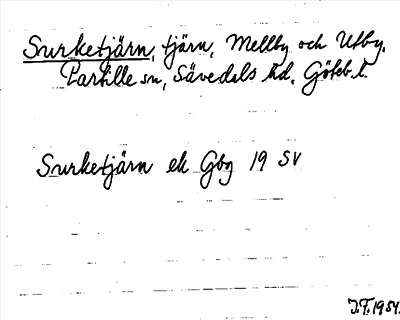 Surketjärn, tjärn, Mellby och Utby,
Partille sn, Sävedals hd, Göteb. l.
Surketjärn ek Gbg 19 SV
J.F. 1954.